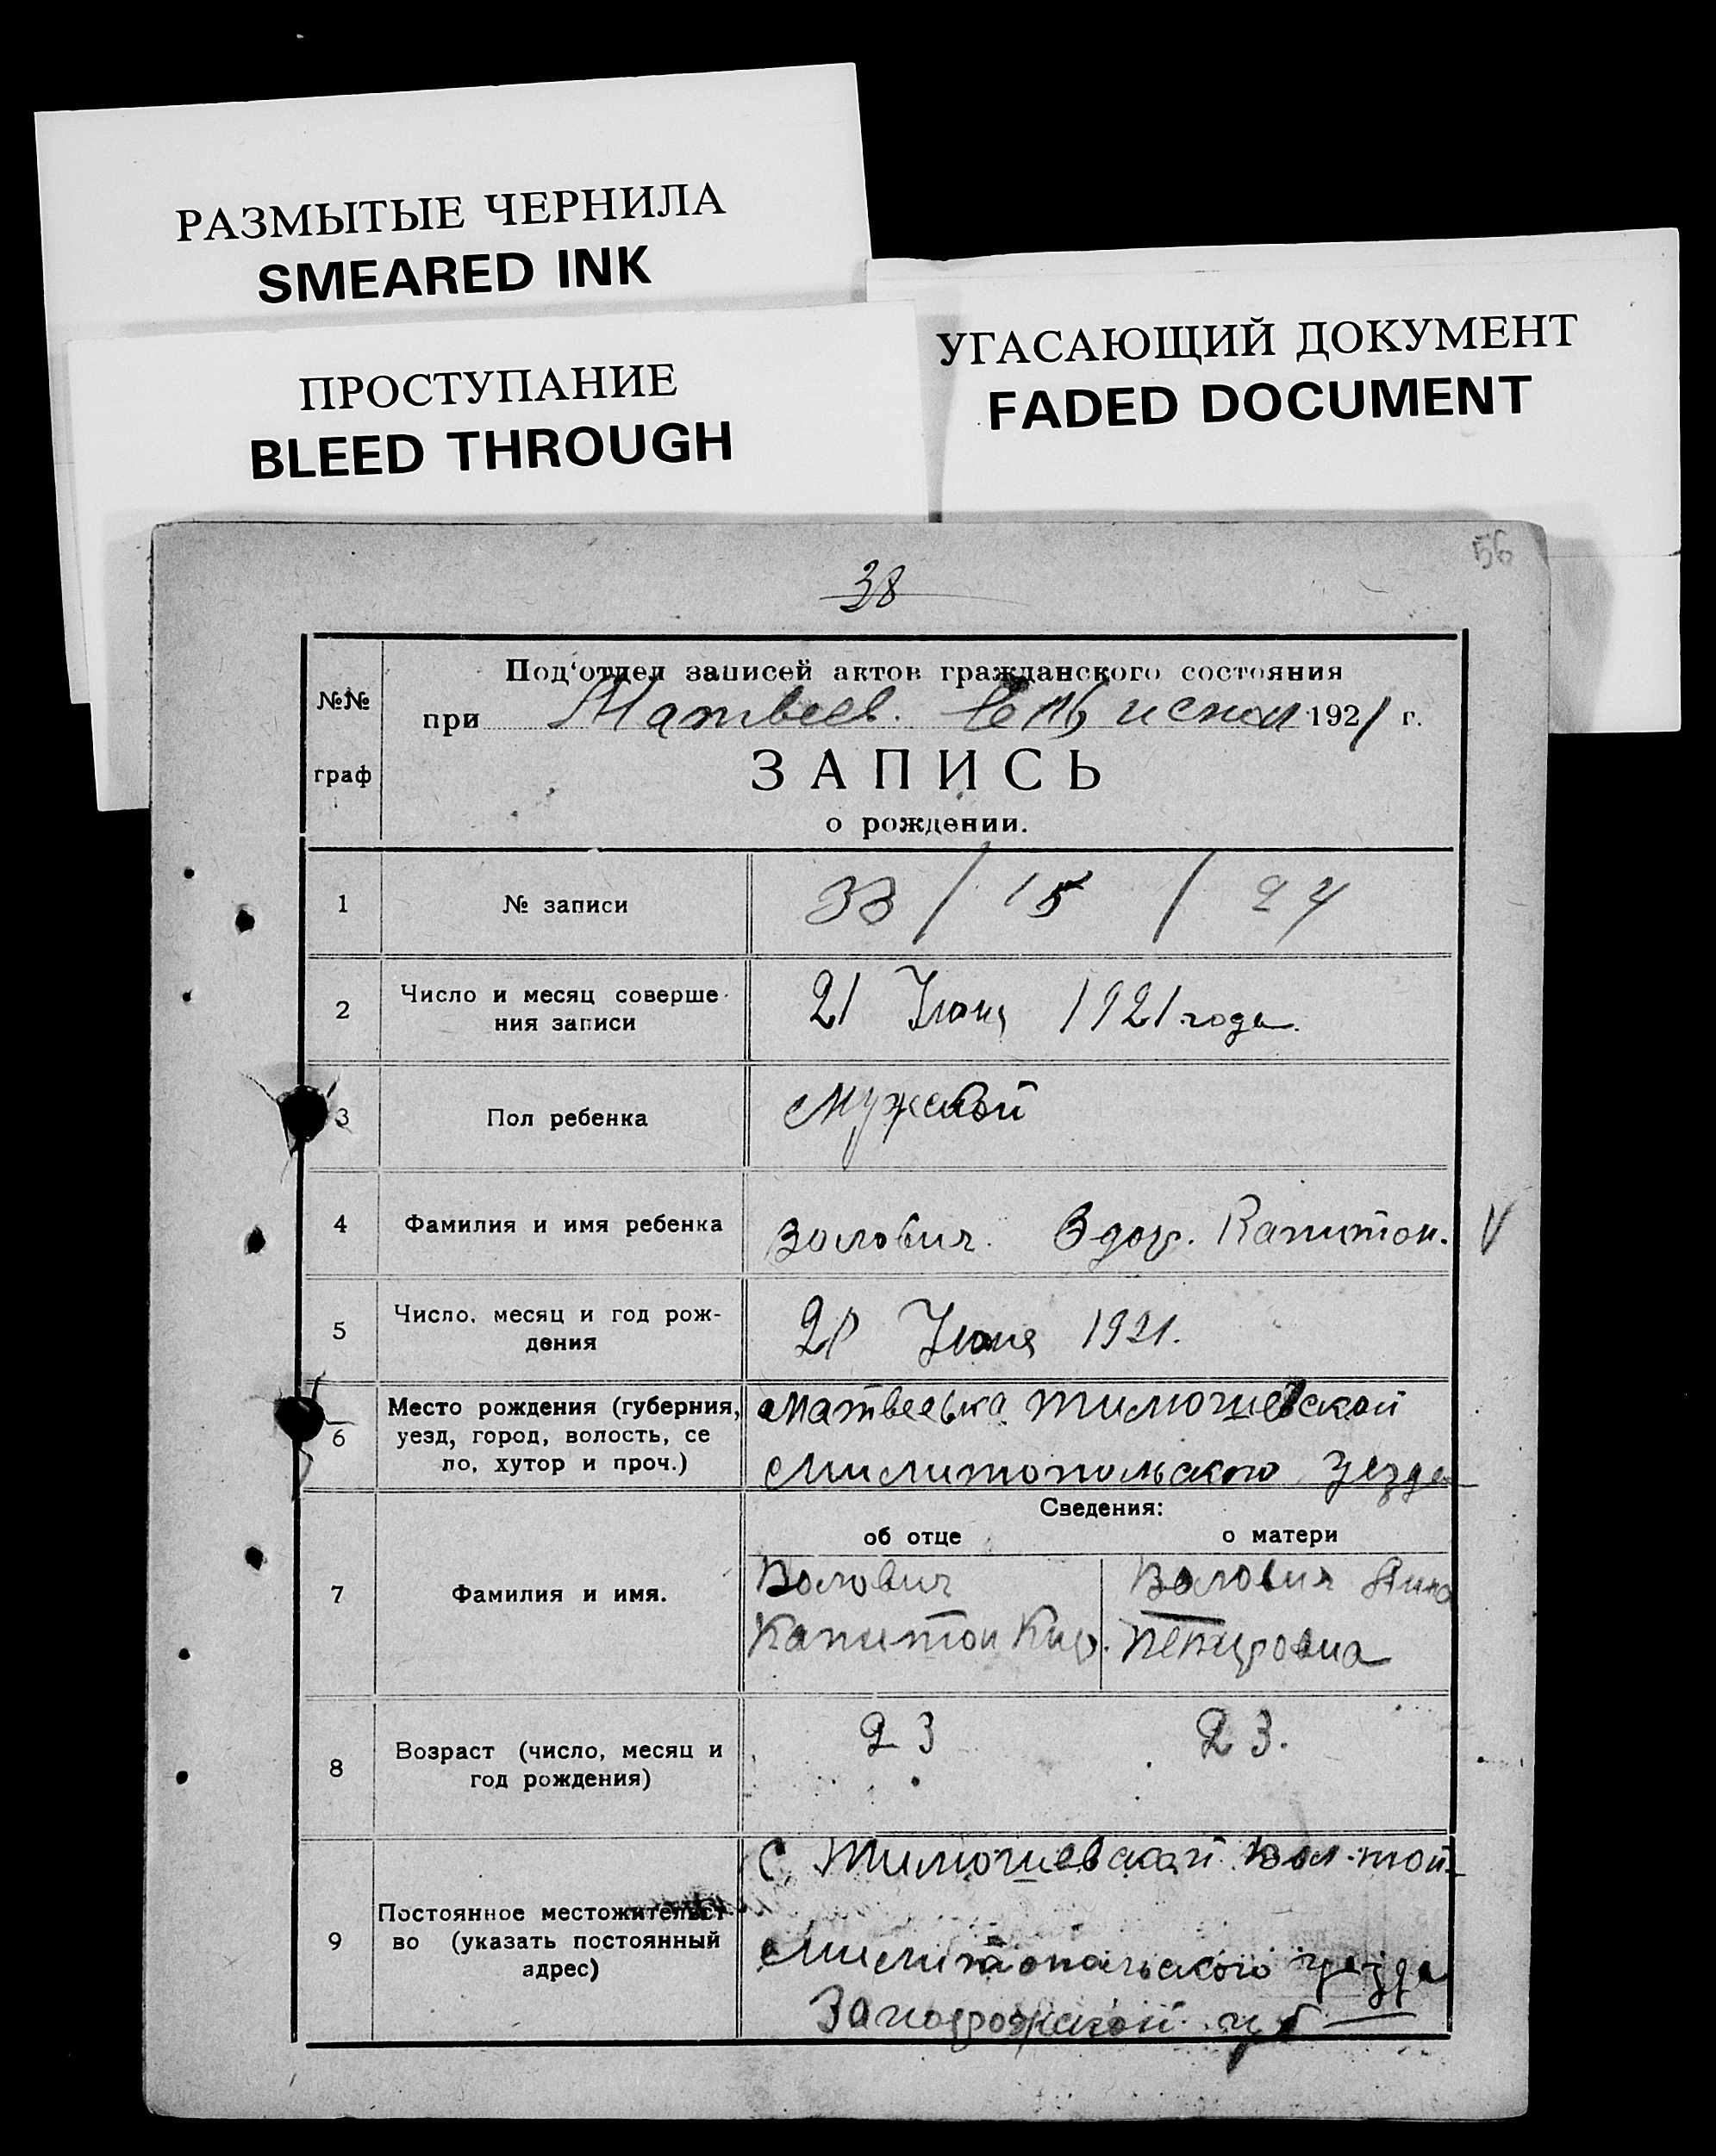 РАЗМЫТЫЕ ЧЕРНИЛА
SMEARED INK
ПРОСТУПАНИЕ
BLEED THROUGH
УГАСАЮЩИЙ ДОКУМЕНТ
FADED DOCUMENT
56
38
№№
граф
Под‘отдел записей актов гражданского состояния
при Матвеев. 1921 г.
ЗАПИСЬ
о рождении.
1 № записи 33 / 15 / 24
2 Число и месяц соверше-
ния записи
21 Июня 1921 года.
3 Пол ребенка Мужской
4 Фамилия и имя ребенка Волович. Капитон. V
5 Число, месяц и год рож-
дения
Июня 1921.
6 Место рождения (губерния,
уезд, город, волость, се
ло, хутор и проч.)
Матвеевка
Милитопольского уезда
Сведения:
об отце
о матери
7 Фамилия и имя.
Волович
Капитон Кир.
Волович
Петровна
8 Возраст (число, месяц и
год рождения)
23
23.
9 Постоянное местожительст
во (указать постоянный
адрес)
С.
Милитопольского уезда
Запорожской губ